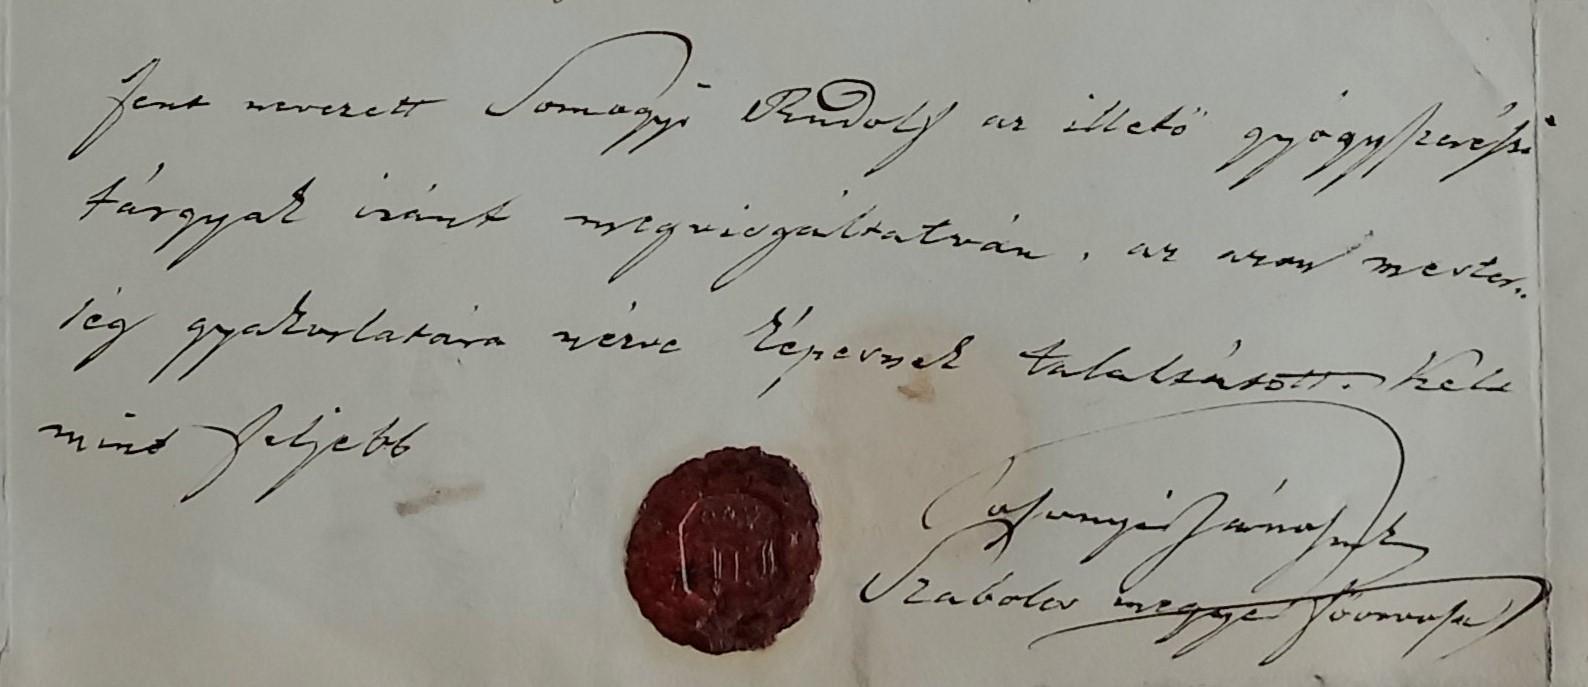 fent nevezett Somogyi Rudolf az illető gyógyszerészi
tárgyak iránt megvisgáltatván, az azon mester„
ség gyakorlatára nézve képesnek találtatott. Kelt
mint feljebb
János
Szabolcs megye főorvosa